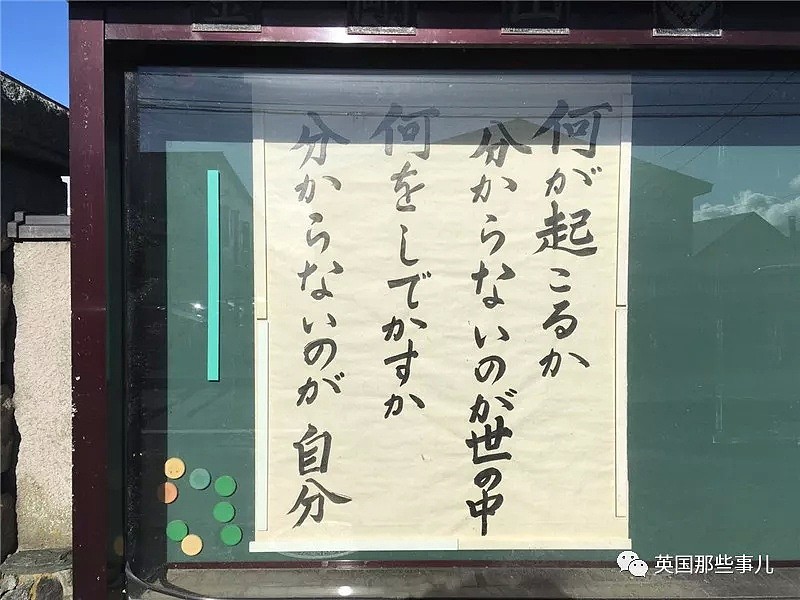 何が起こるか
分からないのが世の中
何をしでかすか
分からないのが自分
英国那些事儿